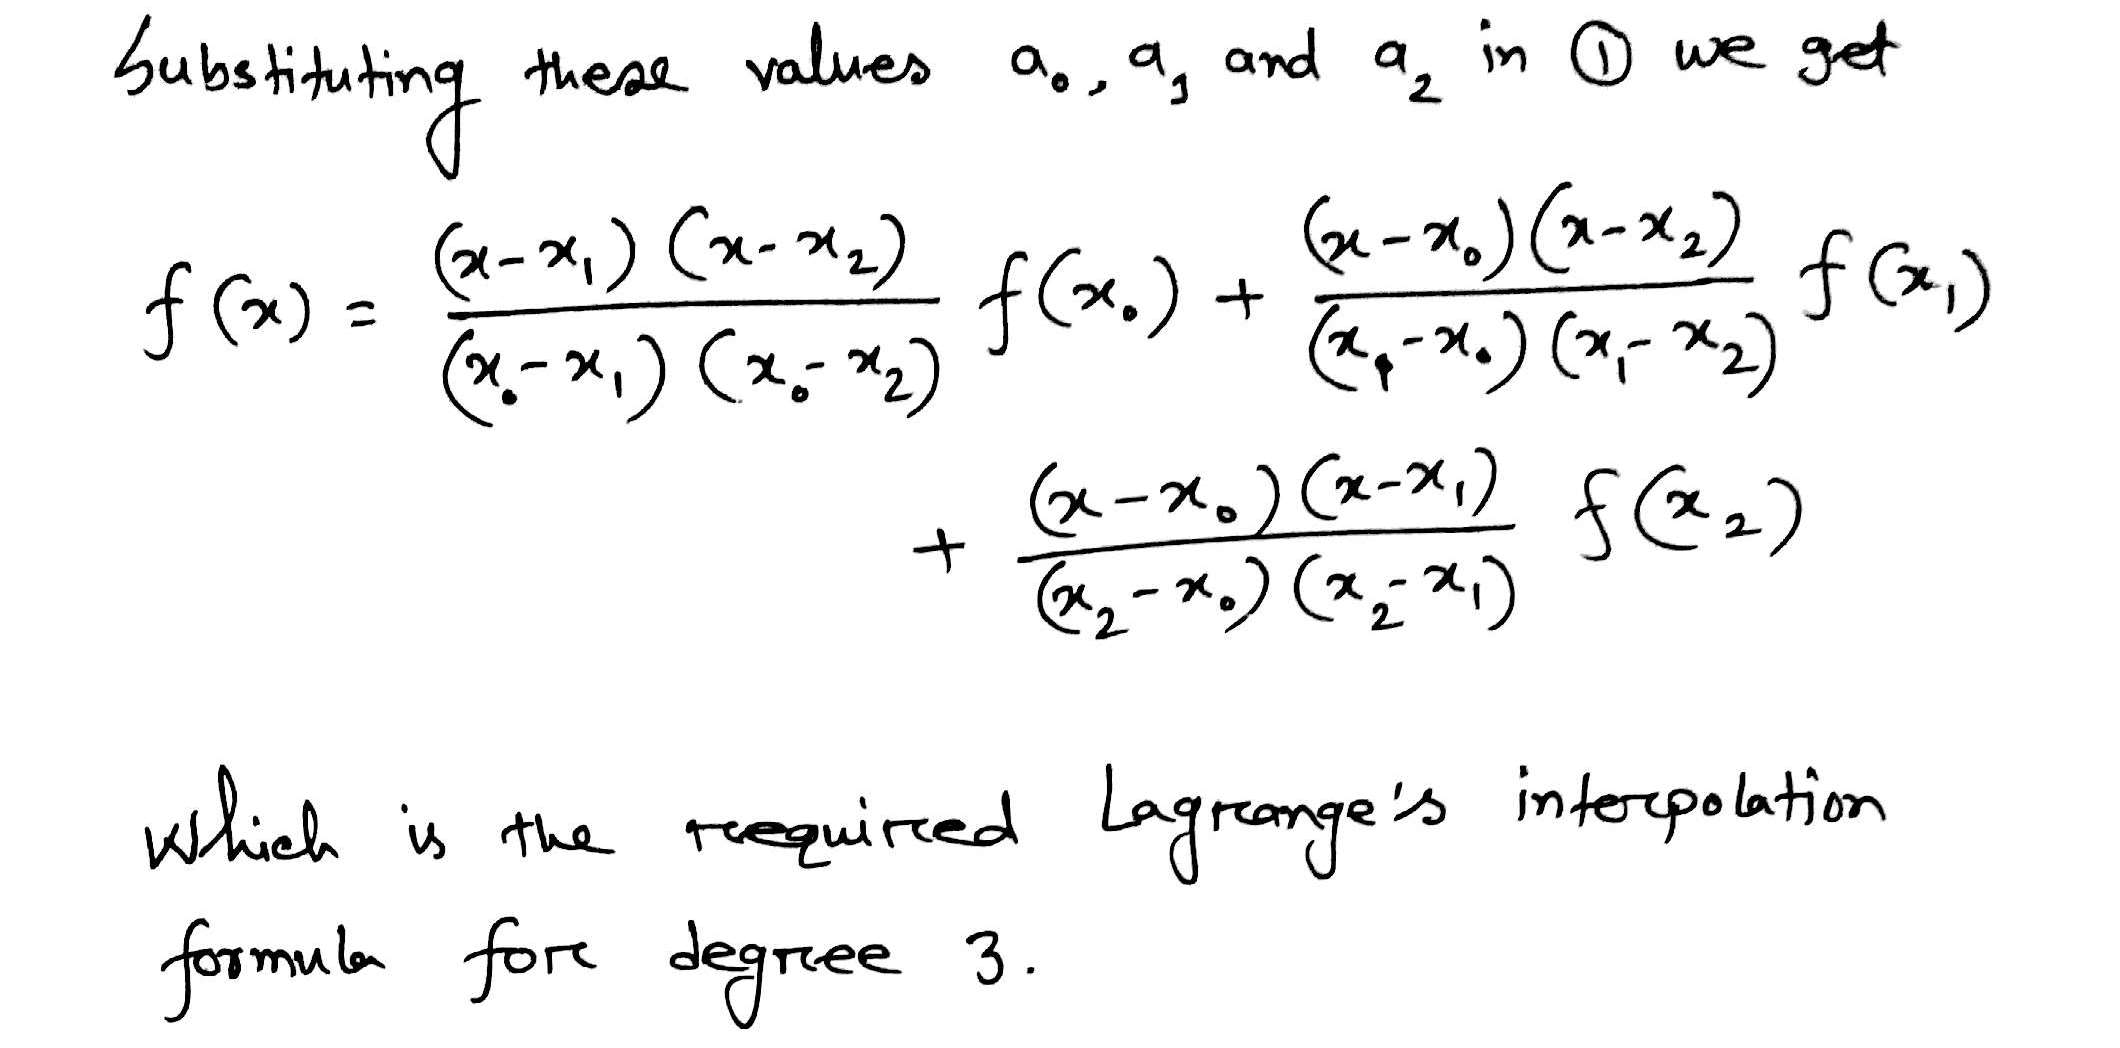 Substituting these values a₀, a₁ and a₂ in ① we get
f(x) = \frac{(x-x₁)(x-x₂)}{(x₀-x₁)(x₀-x₂)} f(x₀) + \frac{(x-x₀)(x-x₂)}{(x₁-x₀)(x₁-x₂)} f(x₁)
+ \frac{(x-x₀)(x-x₁)}{(x₂-x₀)(x₂-x₁)} f(x₂)
which is the required Lagrange's interpolation
formula for degree 3.